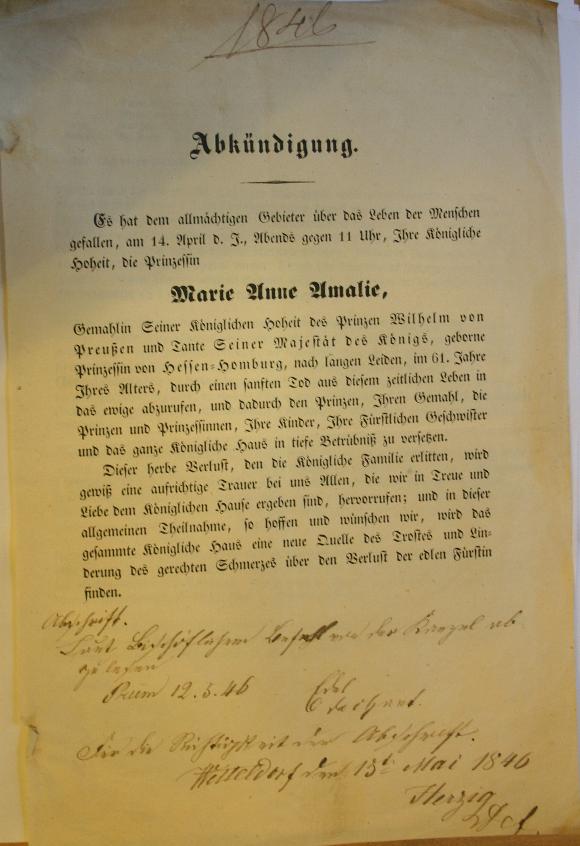 1846
Abkündigung.
Es hat dem allmächtigen Gebieter über das Leben der Menschen
gefallen, am 14. April d. J., Abends gegen 11 Uhr, Ihre Königliche
Hoheit, die Prinzessin
Marie Anne Amalie,
Gemahlin Seiner Königlichen Hoheit des Prinzen Wilhelm von
Preußen und Tante Seiner Majestät des Königs, geborne
Prinzessin von Hessen-Homburg, nach langen Leiden, im 61. Jahre
Ihres Alters, durch einen sanften Tod aus diesem zeitlichen Leben in
das ewige abzurufen, und dadurch den Prinzen, Ihren Gemahl, die
Prinzen und Prinzessinnen, Ihre Kinder, Ihre Fürstlichen Geschwister
und das ganze Königliche Haus in tiefe Betrübniß zu versetzen.
Dieser herbe Verlust, den die Königliche Familie erlitten, wird
gewiß eine aufrichtige Trauer bei uns Allen, die wir in Treue und
Liebe dem Königlichen Hause ergeben sind, hervorrufen; und in dieser
allgemeinen Theilnahme, so hoffen und wünschen wir, wird das
gesammte Königliche Haus eine neue Quelle des Trostes und Lin-
derung des gerechten Schmerzes über den Verlust der edlen Fürstin
finden.
Abschrift.
Laut Bischöflichem Befehl von der Kanzel ab
zulesen
Prüm 12.5.46
Dechant.
Für die Richtigkeit der Abschrift.
den 15t Mai 1846
Herzig